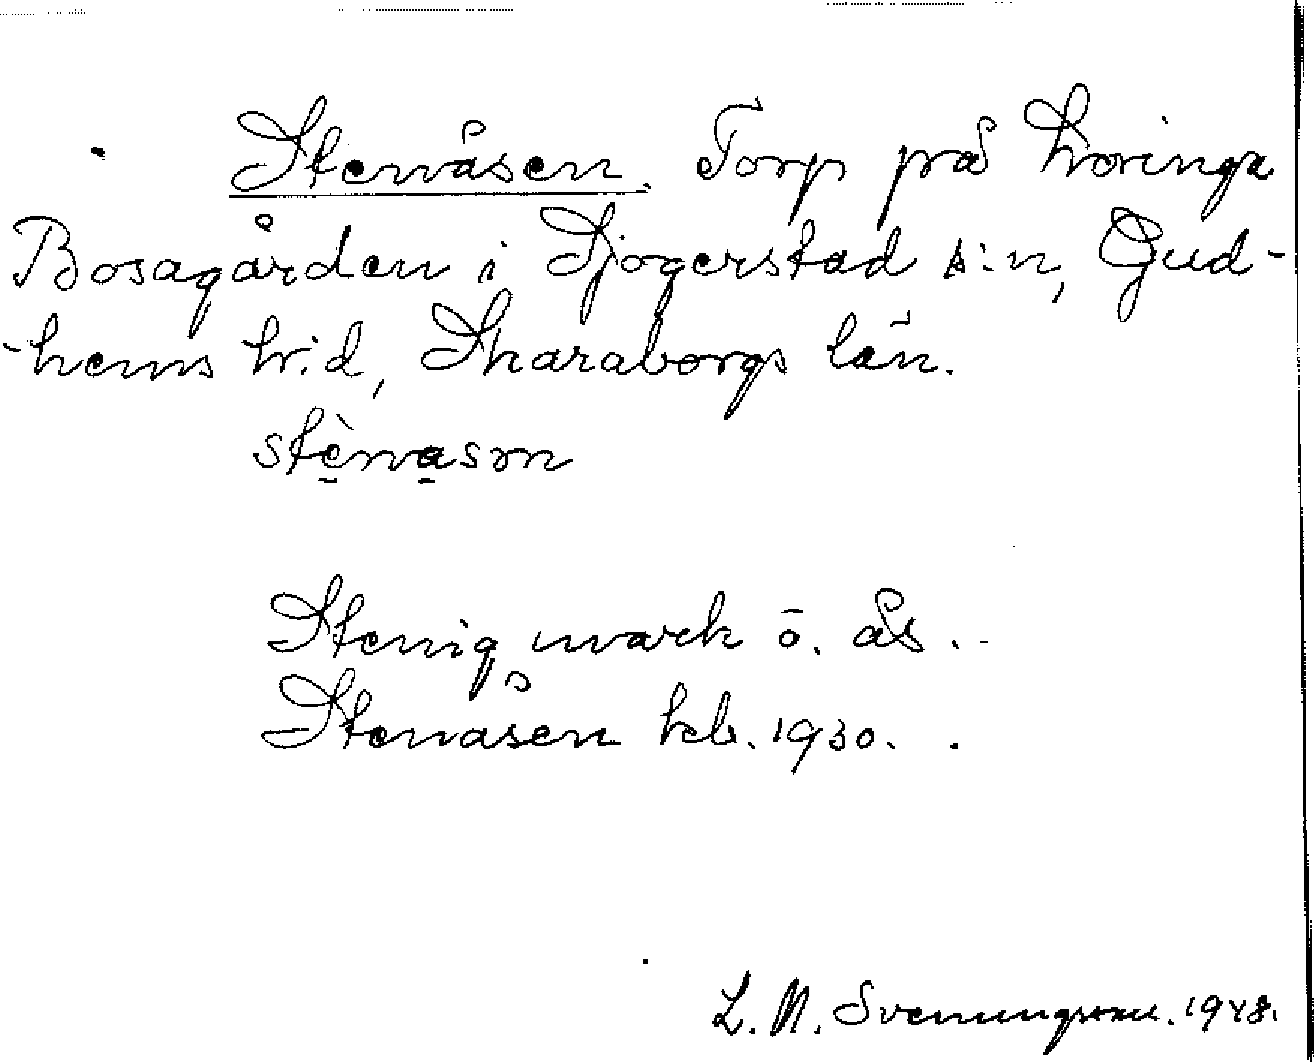 Stenåsen. Torp på Loringa
Bosagården i Sjogerstad s:n, Gud-
-hems h:d, Skaraborgs län.
stènasn
Stenig mark o. ås.
Stenåsen kb. 1930.
L. N. Svenungsson. 1948.